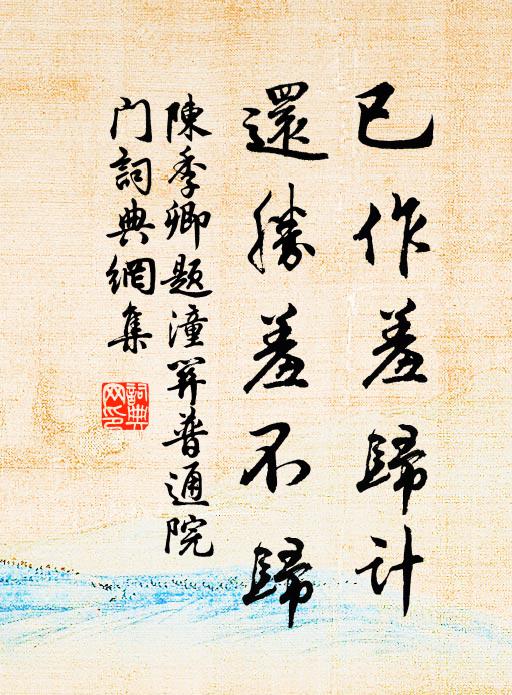 已作羞歸計
還勝羞不歸
陳季卿題潼關普通院
门詞典網集
詞典網印